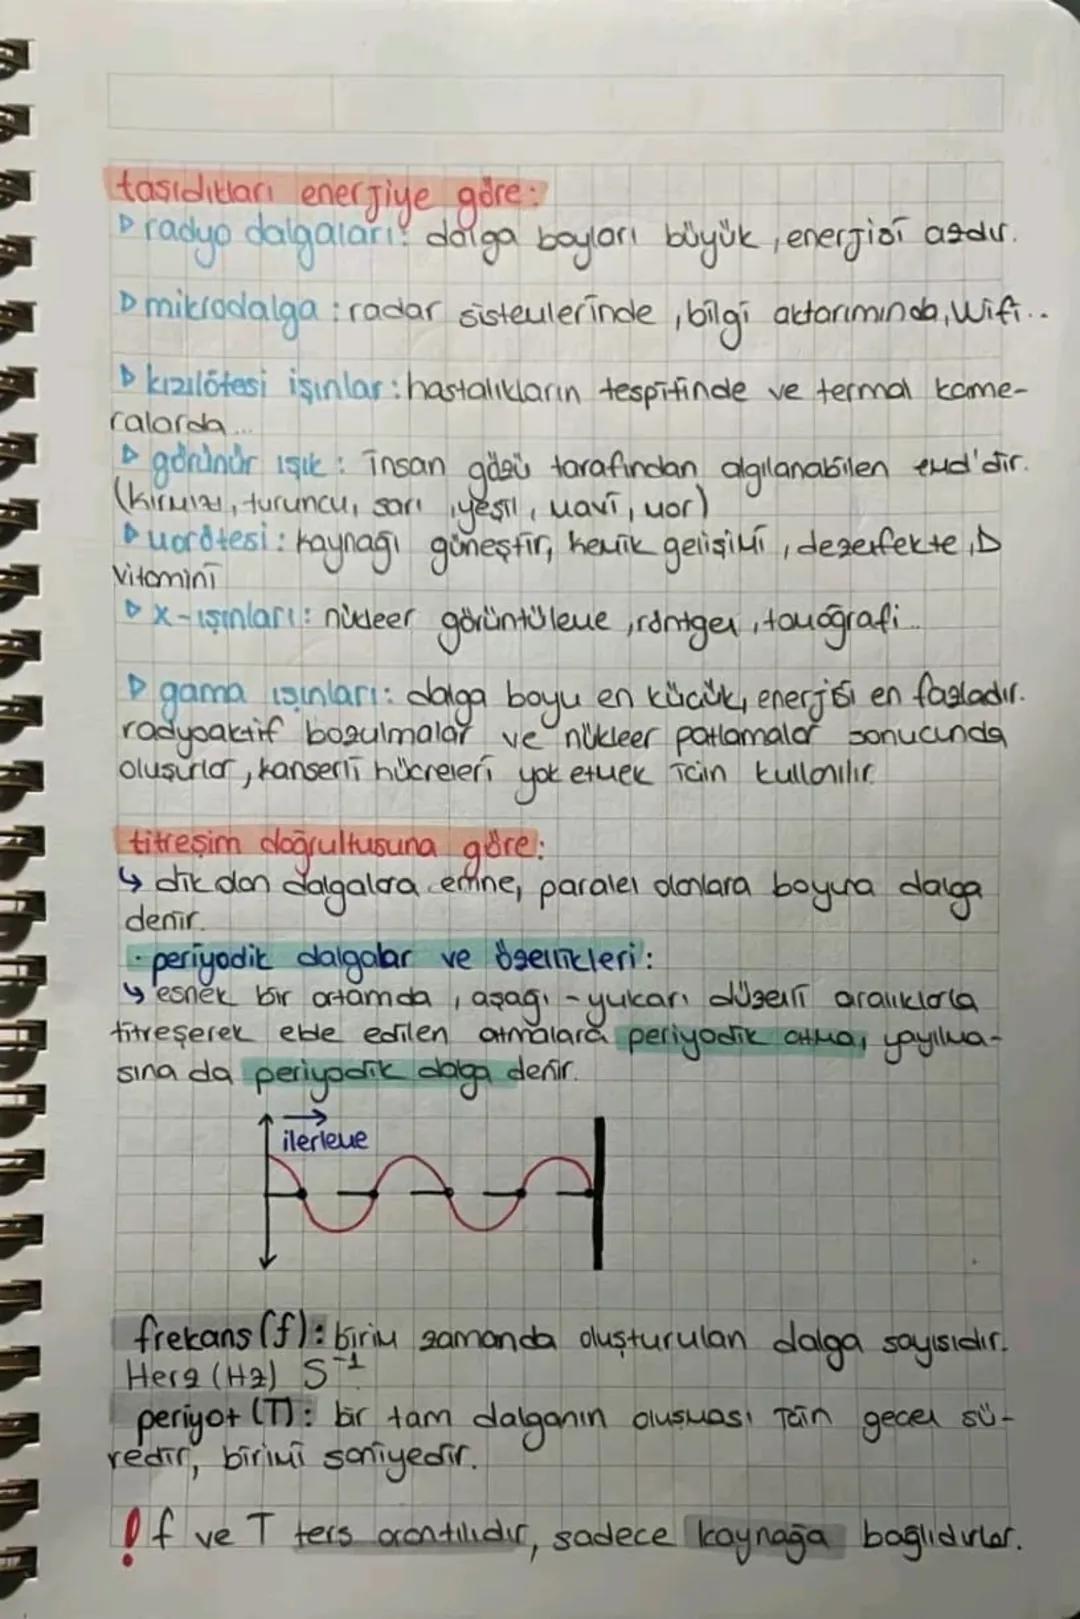 taşıdıkları enerjiye göre:
▷ radyo dalgaları: dalga boyları büyük, enerjisi azdır.
▷ mikrodalga: radar sistemlerinde, bilgi aktarımında, Wifi...
▷ kızılötesi ışınlar: hastalıkların tespitinde ve termal kame-
ralarda...
▷ görünür ışık: insan gözü tarafından algılanabilen emd'dir.
(kırmızı, turuncu, sarı, yeşil, mavi, mor)
▷ morötesi: kaynağı güneştir, kemik gelişimi, dezenfekte, D
vitamini
▷ x-ışınları: nükleer görüntüleme, röntgen, tomografi...
▷ gama ışınları: dalga boyu en küçük, enerjisi en fazladır.
radyoaktif bozulmalar ve nükleer patlamalar sonucunda
oluşurlar, kanserli hücreleri yok etmek için kullanılır.
titreşim doğrultusuna göre:
↳ dik olan dalgalara enine, paralel olanlara boyuna dalga
denir.
· periyodik dalgalar ve özellikleri:
↳ esnek bir ortamda, aşağı-yukarı düzenli aralıklarla
titreşerek elde edilen atmalara periyodik atma, yayılma-
sına da periyodik dalga denir.
ilerleme
frekans (f): birim zamanda oluşturulan dalga sayısıdır.
Herz (Hz) S⁻¹
periyot (T): bir tam dalganın oluşması için geçen sü-
redir, birimi saniyedir.
! f ve T ters orantılıdır, sadece kaynağa bağlıdırlar.